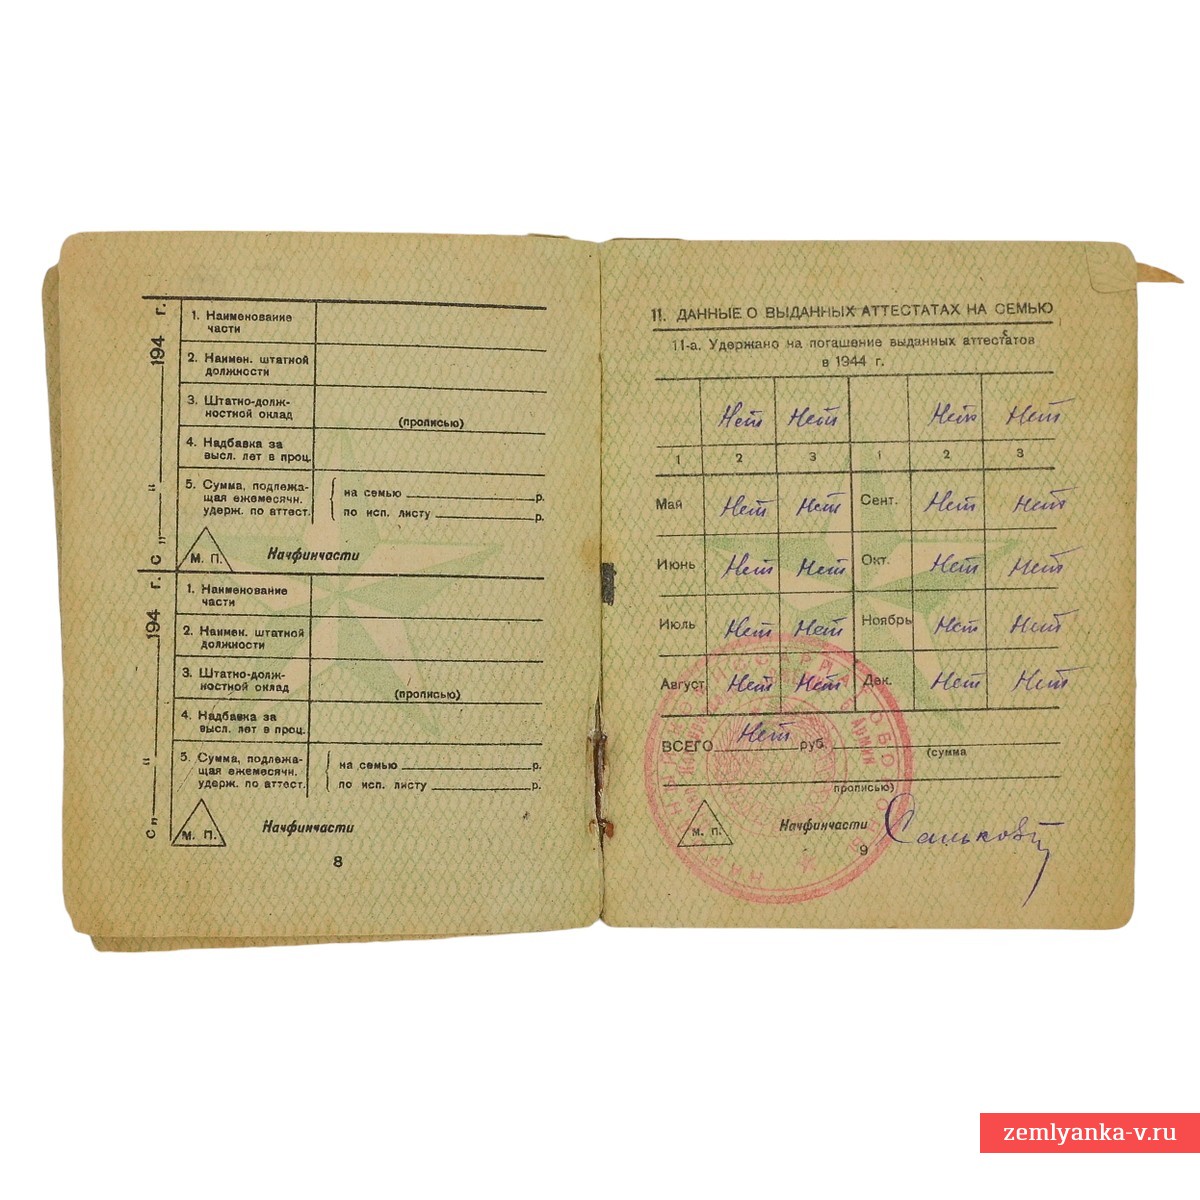 с „ “ 194 г.
1. Наименование
части
2. Наимен. штатной
должности
3. Штатно-долж-
ностной оклад
(прописью)
4. Надбавка за
высл. лет в проц.
5. Сумма, подлежа-
щая ежемесячн.
удерж. по аттест.
на семью р.
по исп. листу р.
М. П.
Начфинчасти
с „ “ 194 г.
1. Наименование
части
2. Наимен. штатной
должности
3. Штатно-долж-
ностной оклад
(прописью)
4. Надбавка за
высл. лет в проц.
5. Сумма, подлежа-
щая ежемесячн.
удерж. по аттест.
на семью р.
по исп. листу р.
М. П.
Начфинчасти
8
11. ДАННЫЕ О ВЫДАННЫХ АТТЕСТАТАХ НА СЕМЬЮ
11-а. Удержано на погашение выданных аттестатов
в 1944 г.
Нет Нет Нет Нет
1 2 3 1 2 3
Май Нет Нет Сент. Нет Нет
Июнь Нет Нет Окт. Нет Нет
Июль Нет Нет Ноябрь Нет Нет
Август Нет Нет Дек. Нет Нет
ВСЕГО Нет руб.
(сумма
прописью)
М. П.
Начфинчасти
9
zemlyanka-v.ru